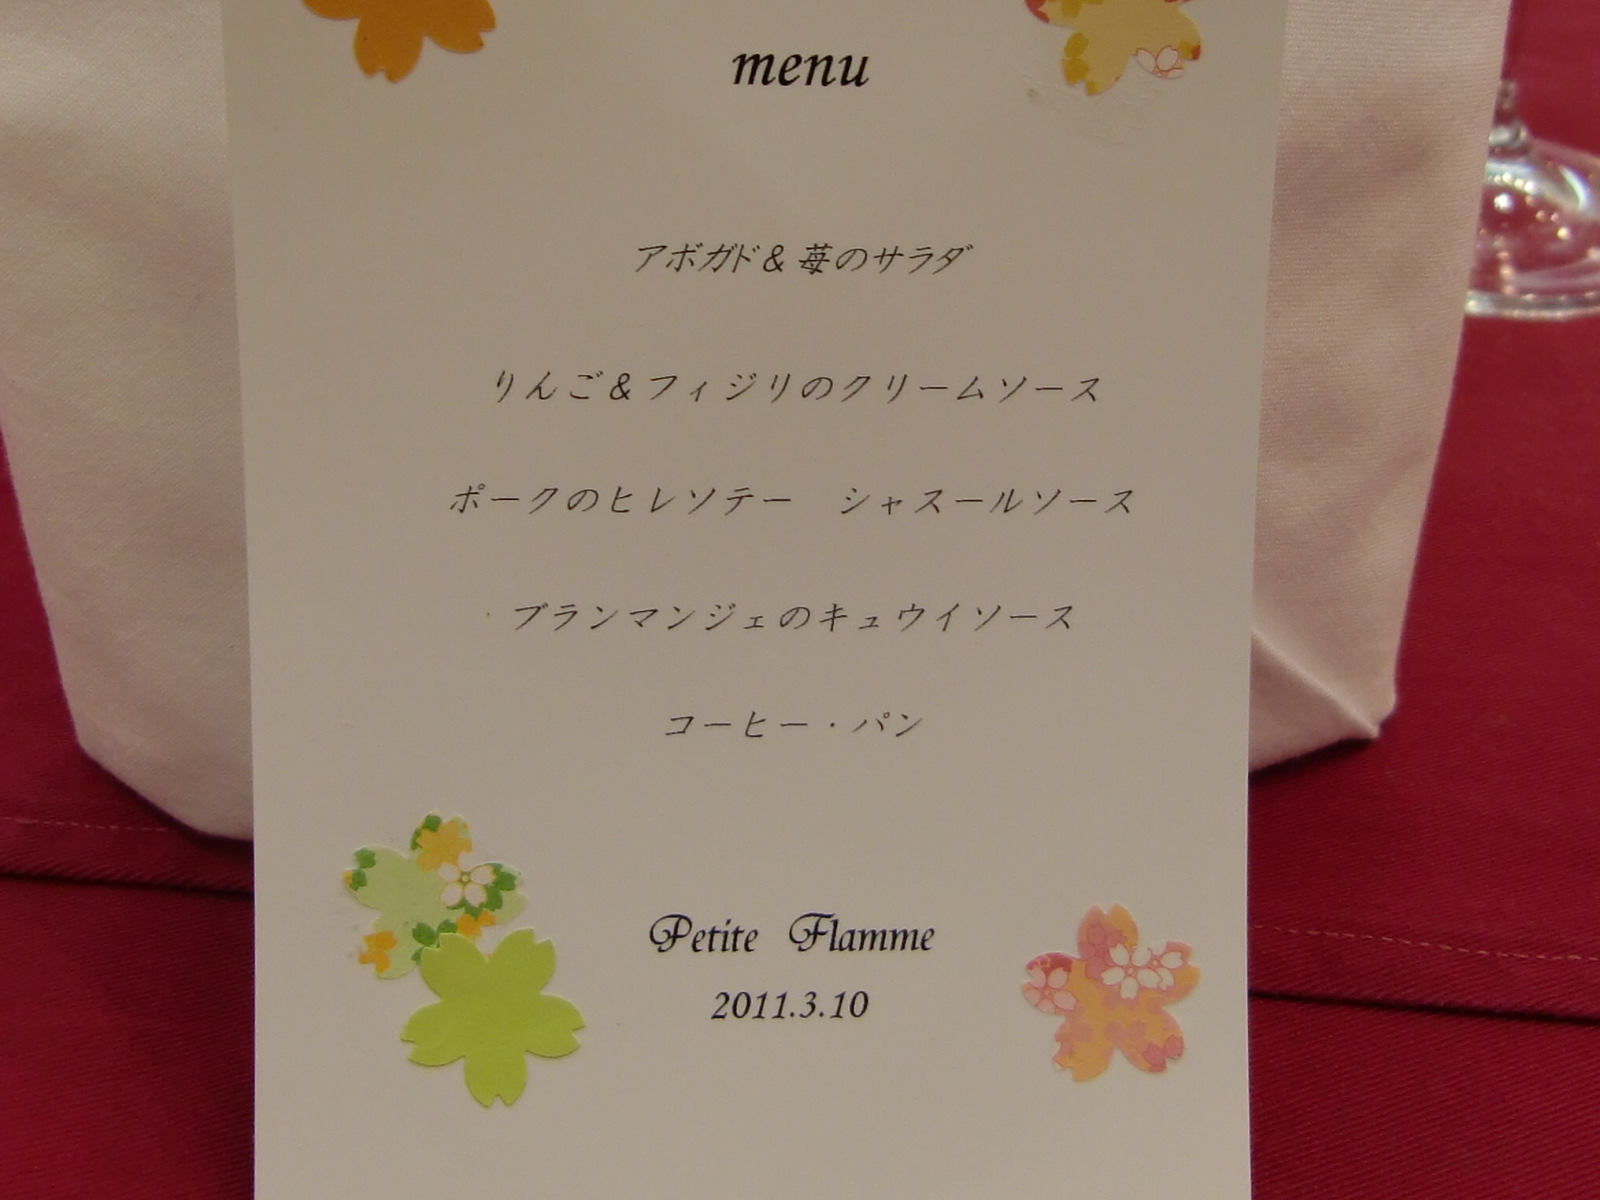 menu
アボガド＆苺のサラダ
りんご＆フィジリのクリームソース
ポークのヒレソテー　シャスールソース
ブランマンジェのキュウイソース
コーヒー・パン
Petite Flamme
2011.3.10